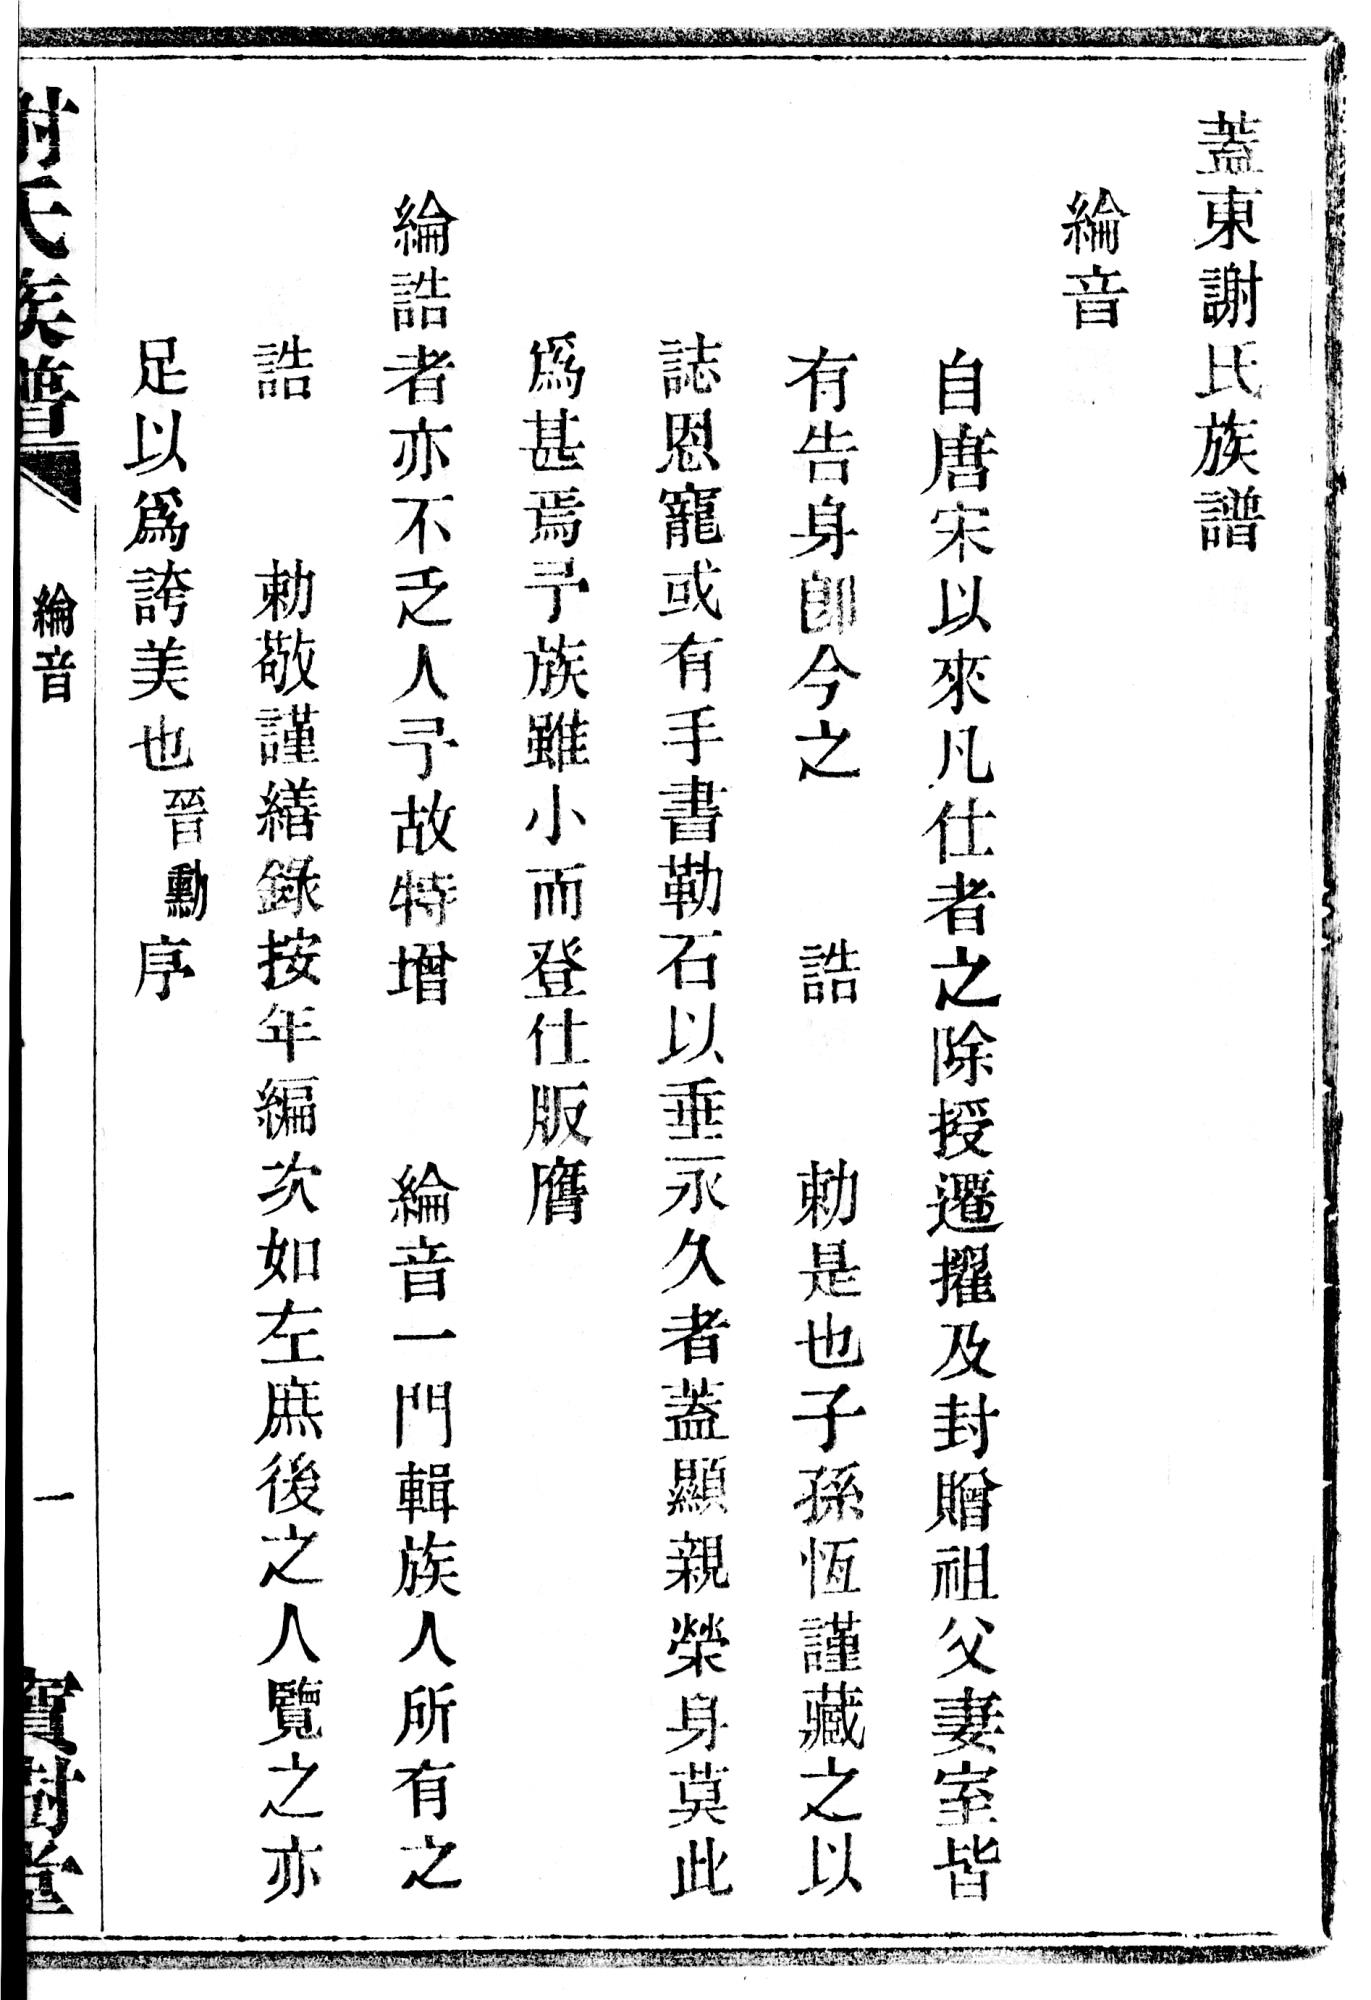 蓋東謝氏族譜
綸音
自唐宋以來凡仕者之除授遷擢及封贈祖父妻室皆
有告身卽今之　誥　勅是也子孫恆謹藏之以
誌恩寵或有手書勒石以垂永久者蓋顯親榮身莫此
爲甚焉予族雖小而登仕版膺
綸誥者亦不乏人予故特增　綸音一門輯族人所有之
誥　勅敬謹繕錄按年編次如左庶後之人覽之亦
足以爲誇美也晉勳序
謝氏族譜　綸音　一　寶樹堂